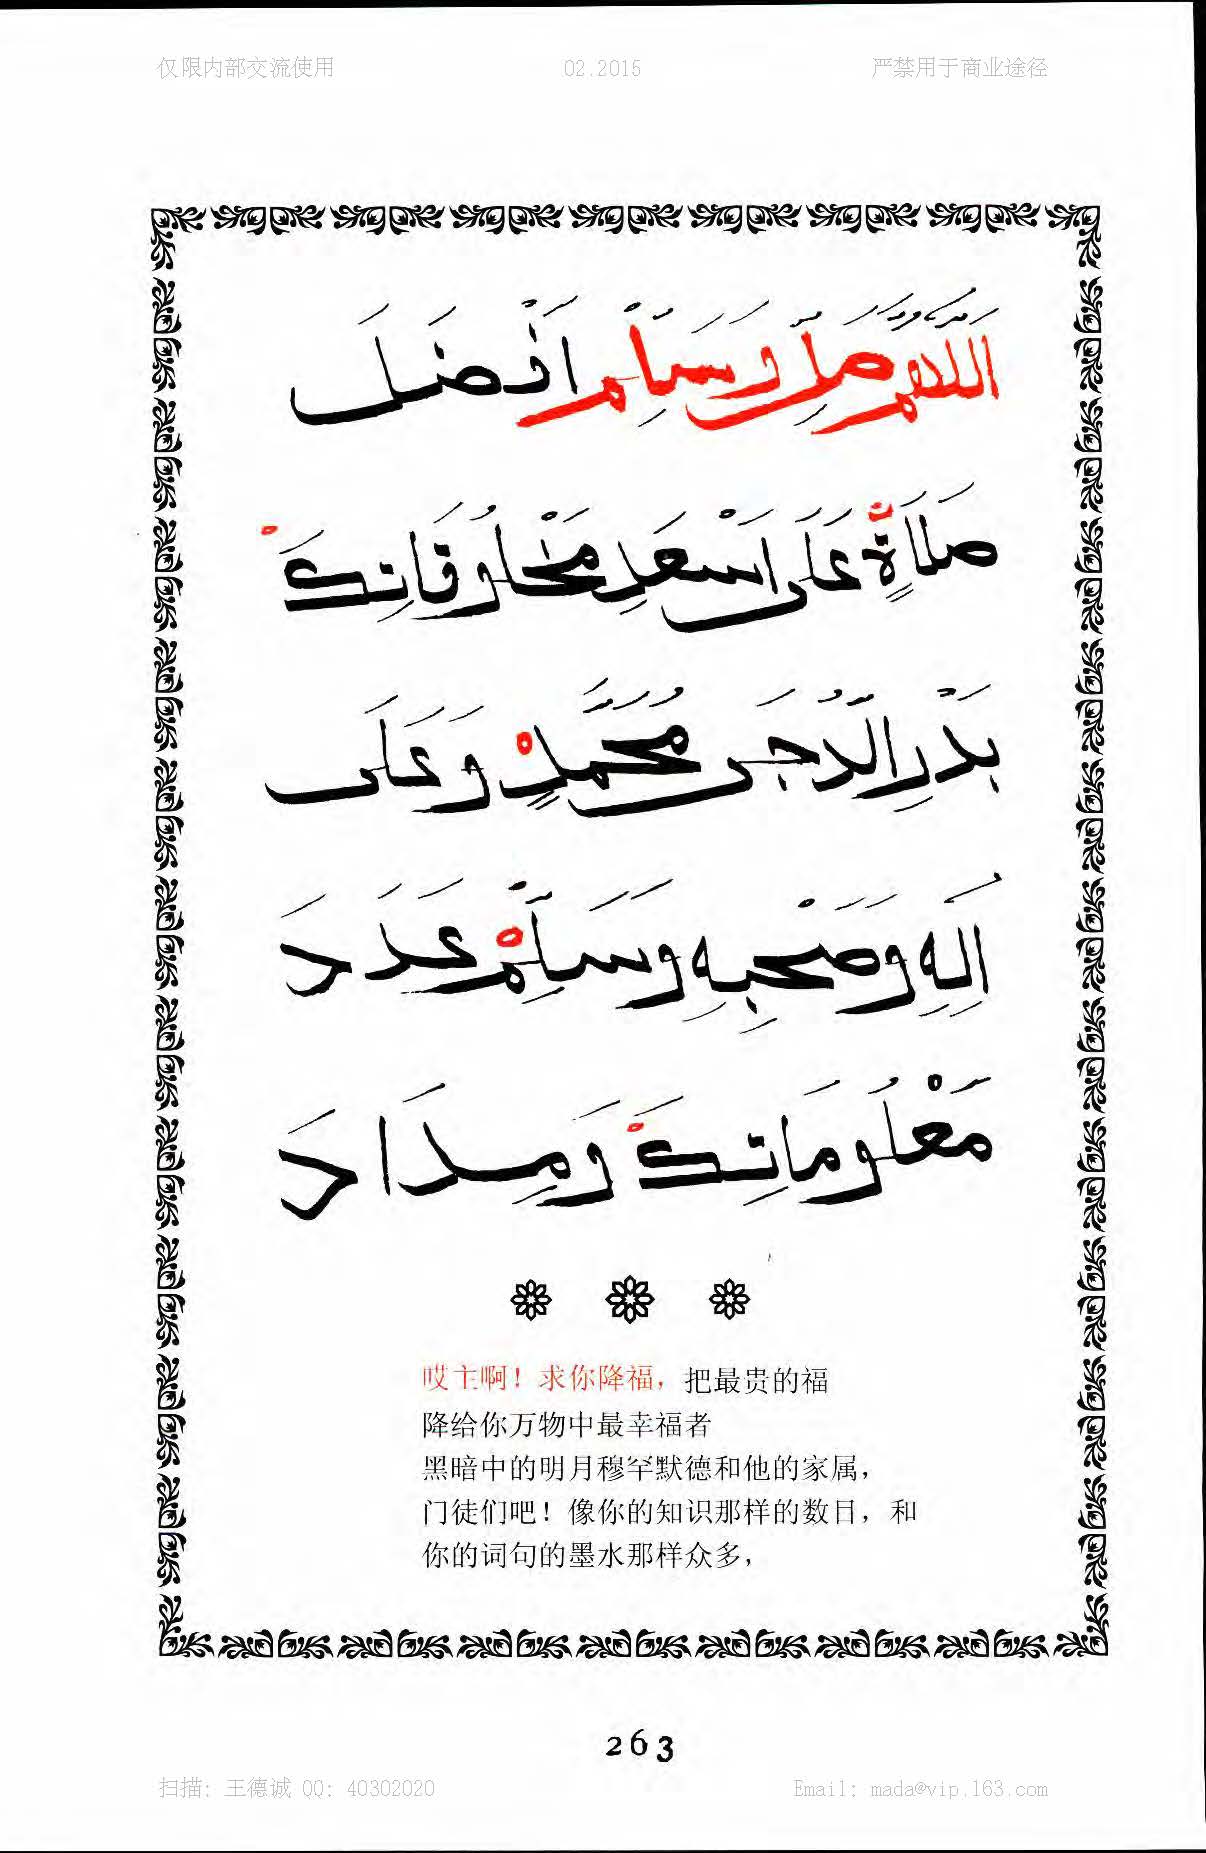 仅限内部交流使用 02.2015 严禁用于商业途径
اَللّٰهُمَّ صَلِّ وَسَلِّمْ اَفْضَلَ
صَلَاةٍ عَلَى اَسْعَدِ مَخْلُوقَاتِكَ
بَدْرِ الدُّجَى مُحَمَّدٍ وَعَلَى
اٰلِهِ وَصَحْبِهِ وَسَلِّمْ عَدَدَ
مَعْلُومَاتِكَ وَمِدَادَ
哎主啊！求你降福，把最贵的福
降给你万物中最幸福者
黑暗中的明月穆罕默德和他的家属，
门徒们吧！像你的知识那样的数目，和
你的词句的墨水那样众多，
263
扫描: 王德诚 QQ: 40302020 Email: mada@vip.163.com